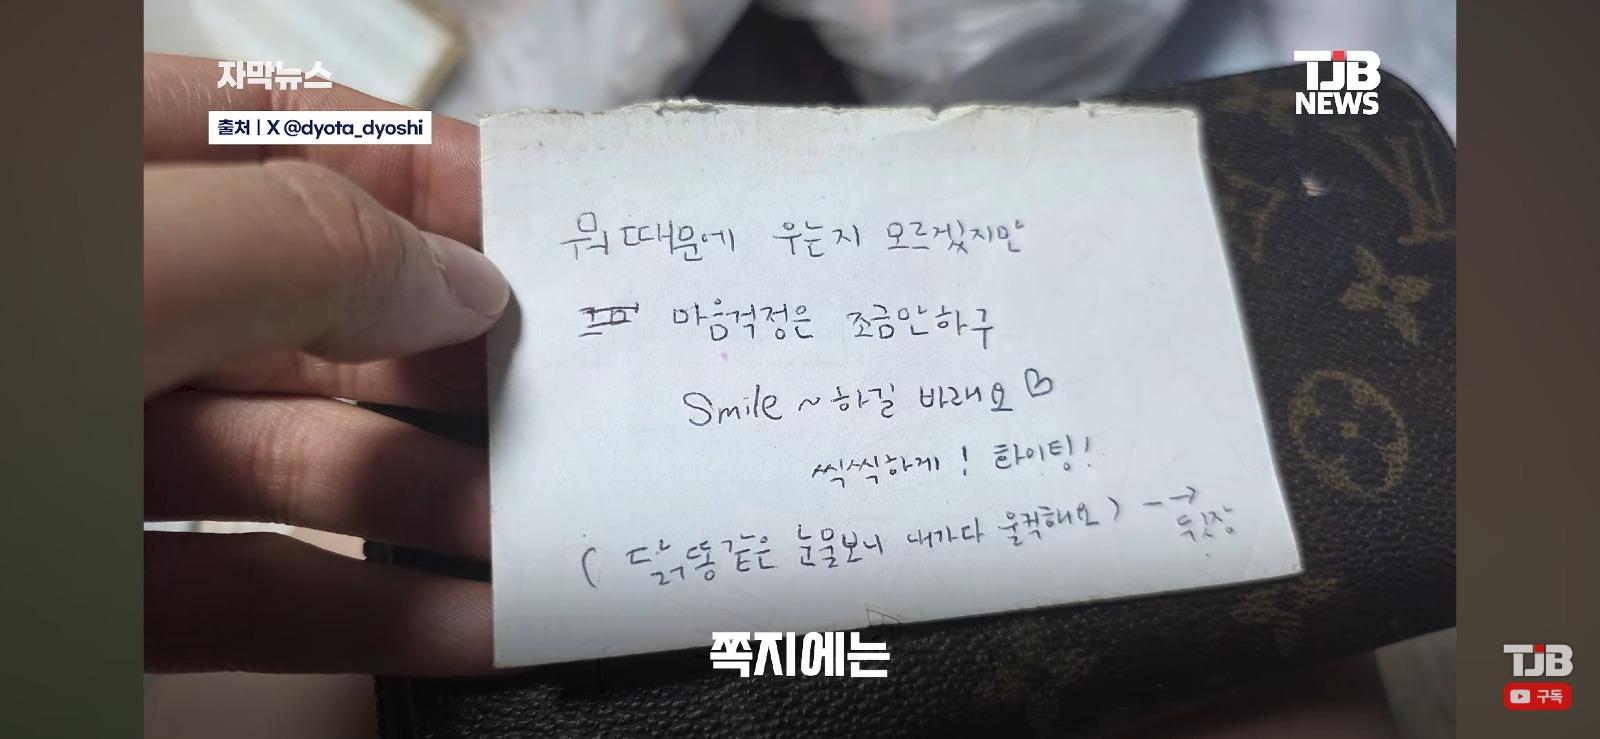 자막뉴스
출처 | X @dyota_dyoshi
TJB
NEWS
뭐 때문에 우는지 모르겠지만
마음걱정은 조금만하구
Smile ~ 하길 바래요 ♡
씩씩하게! 화이팅!
( 닭똥같은 눈물보니 내가다 울컥해요 ) -→
뒷장
쪽지에는
TJB
구독